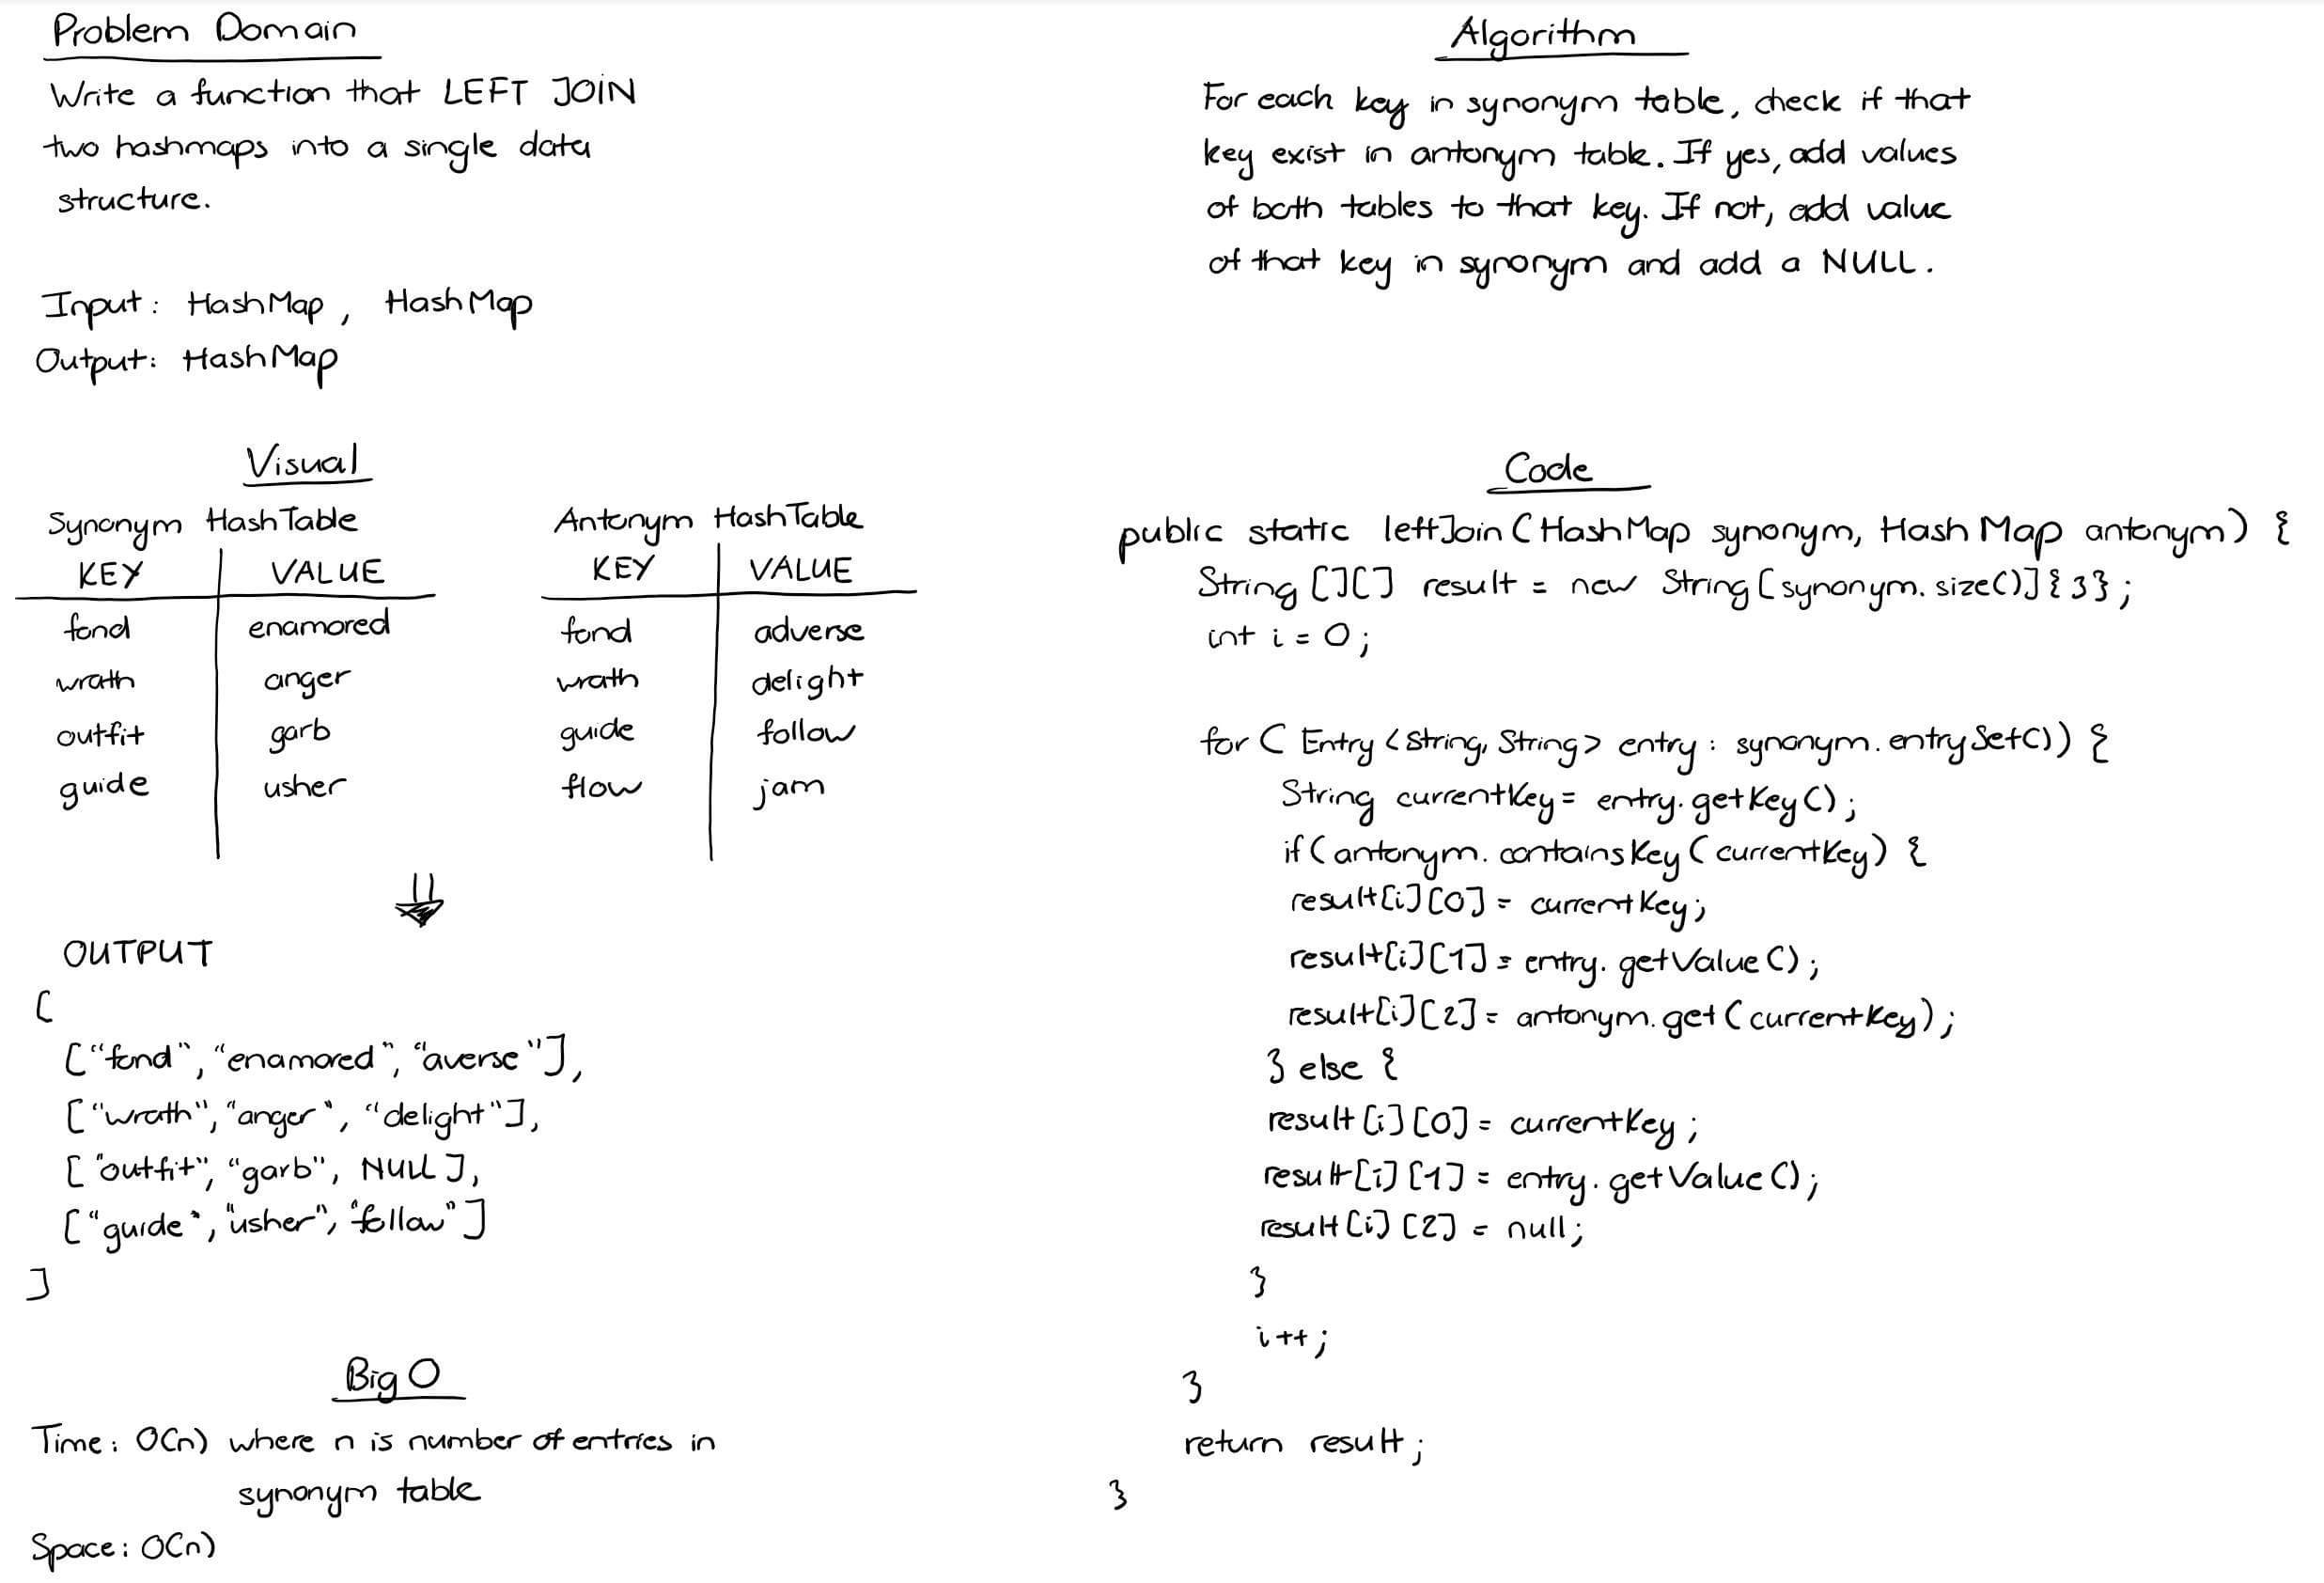 Problem Domain
Write a function that LEFT JOIN
two hashmaps into a single data
structure.
Input: HashMap, HashMap
Output: HashMap
Visual
Synonym HashTable
KEY VALUE
fond enamored
wrath anger
outfit garb
guide usher
Antonym HashTable
KEY VALUE
fond adverse
wrath delight
guide follow
flow jam
OUTPUT
[
["fond", "enamored", "averse"],
["wrath", "anger", "delight"],
["outfit", "garb", NULL],
["guide", "usher", "follow"]
]
Big O
Time: O(n) where n is number of entries in
synonym table
Space: O(n)
Algorithm
For each key in synonym table, check if that
key exist in antonym table. If yes, add values
of both tables to that key. If not, add value
of that key in synonym and add a NULL.
Code
public static leftJoin(HashMap synonym, HashMap antonym) {
String[][] result = new String[synonym.size()]{3};
int i = 0;
for (Entry<String, String> entry : synonym.entrySet()) {
String currentKey = entry.getKey();
if(antonym.containsKey(currentKey) {
result[i][0] = currentKey;
result[i][1] = entry.getValue();
result[i][2] = antonym.get(currentKey);
} else {
result[i][0] = currentKey;
result[i][1] = entry.getValue();
result[i][2] = null;
}
i++;
}
return result;
}